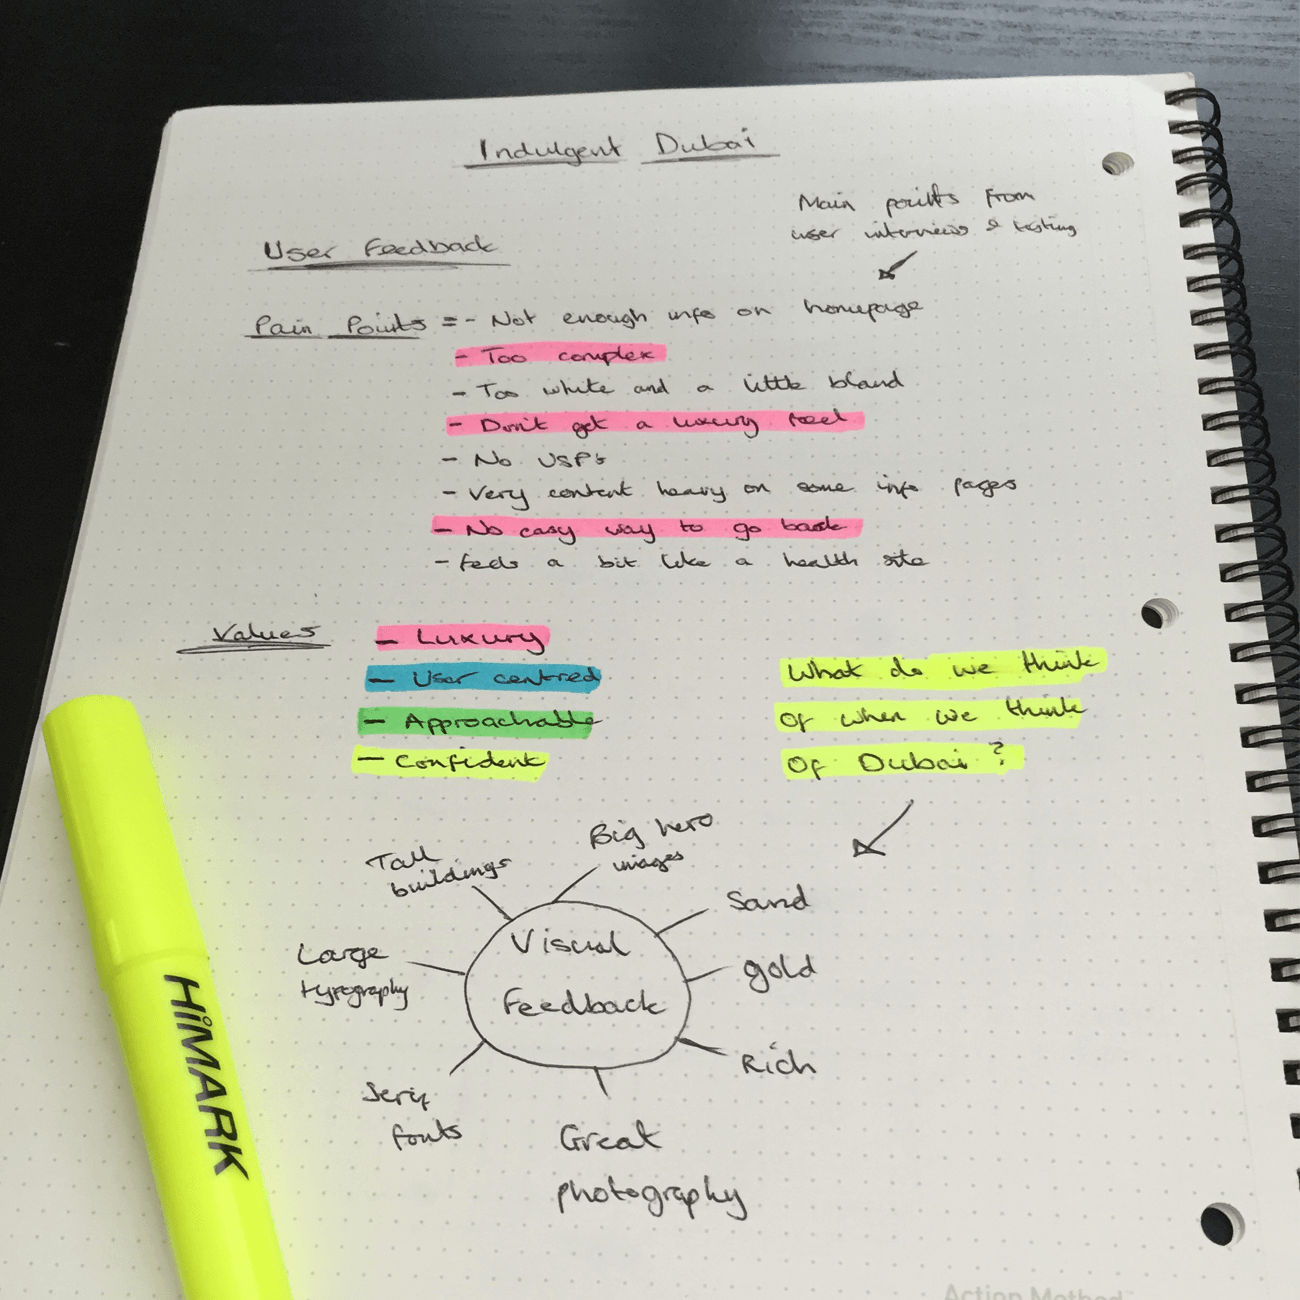 Indulgent Dubai
Main points from
user interviews & testing
User Feedback
Pain Points = - Not enough info on homepage
- Too complex
- Too white and a little bland
- Don't get a luxury feel
- No USPs
- Very content heavy on some info pages
- No easy way to go back
- feels a bit like a health site
Values
- Luxury
- User centred
- Approachable
- Confident
What do we think
Of when we think
Of Dubai ?
Tall
buildings
Big hero
images
Sand
Large
typography
Visual
Feedback
gold
Rich
Serif
fonts
Great
photography
HiMARK
Action Method